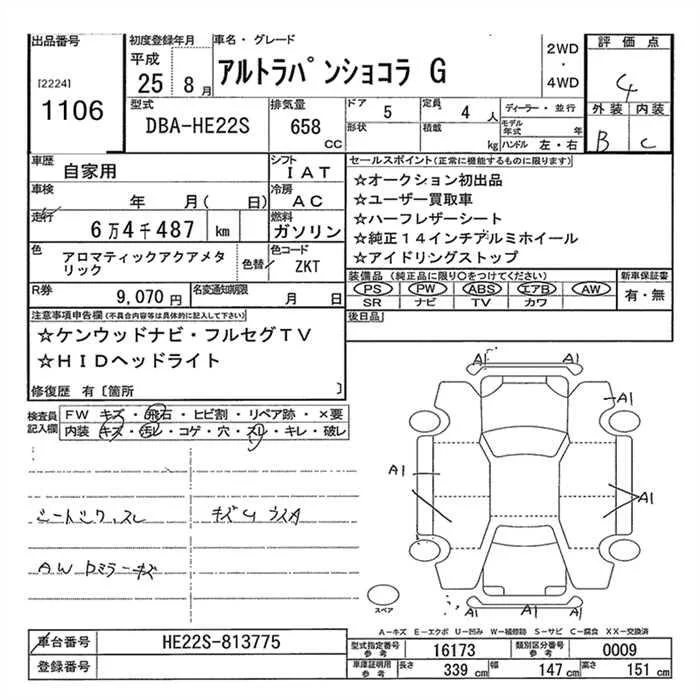 出品番号
[2224]
1106
初度登録年月
平成
25 8月
車名・グレード
アルトラパンショコラ G
2WD
・
4WD
評価点
4
外装 内装
B C
型式
DBA-HE22S
排気量
658
CC
ドア
5
定員
4 人
形状
積載
kg
ディーラー・並行
モデル年式 年
ハンドル 左・右
車歴
自家用
シフト
IAT
車検
年 月( 日)
冷房
AC
走行
6万4千487 km
燃料
ガソリン
色
アロマティックアクアメタリック
色替
色コード
ZKT
R券
9,070 円
名変通知期限
月 日
セールスポイント(正常に機能するものに限ります)
☆オークション初出品
☆ユーザー買取車
☆ハーフレザーシート
☆純正14インチアルミホイール
☆アイドリングストップ
装備品(純正品に限り○をつけてください)
PS PW ABS エアB AW
SR ナビ TV カワ
新車保証書
有・無
後日品
注意事項申告欄(不具合内容等は具体的に記入して下さい)
☆ケンウッドナビ・フルセグTV
☆HIDヘッドライト
修復歴 有〔箇所 〕
検査員
記入欄
FW キズ・飛石・ヒビ割・リペア跡・×要
内装 キズ・汚レ・コゲ・穴・スレ・キレ・破レ
AWドミラーキズ
A1 A1
A1
A1
A1
A1 A1
スペア
A-キズ E-エクボ U-凹み W-補修跡 S-サビ C-腐食 XX-交換済
車台番号
HE22S-813775
登録番号
型式指定番号
参考
16173
類別区分番号
参考
0009
車庫証明用
参考
長さ 339 cm
幅 147 cm
高さ 151 cm